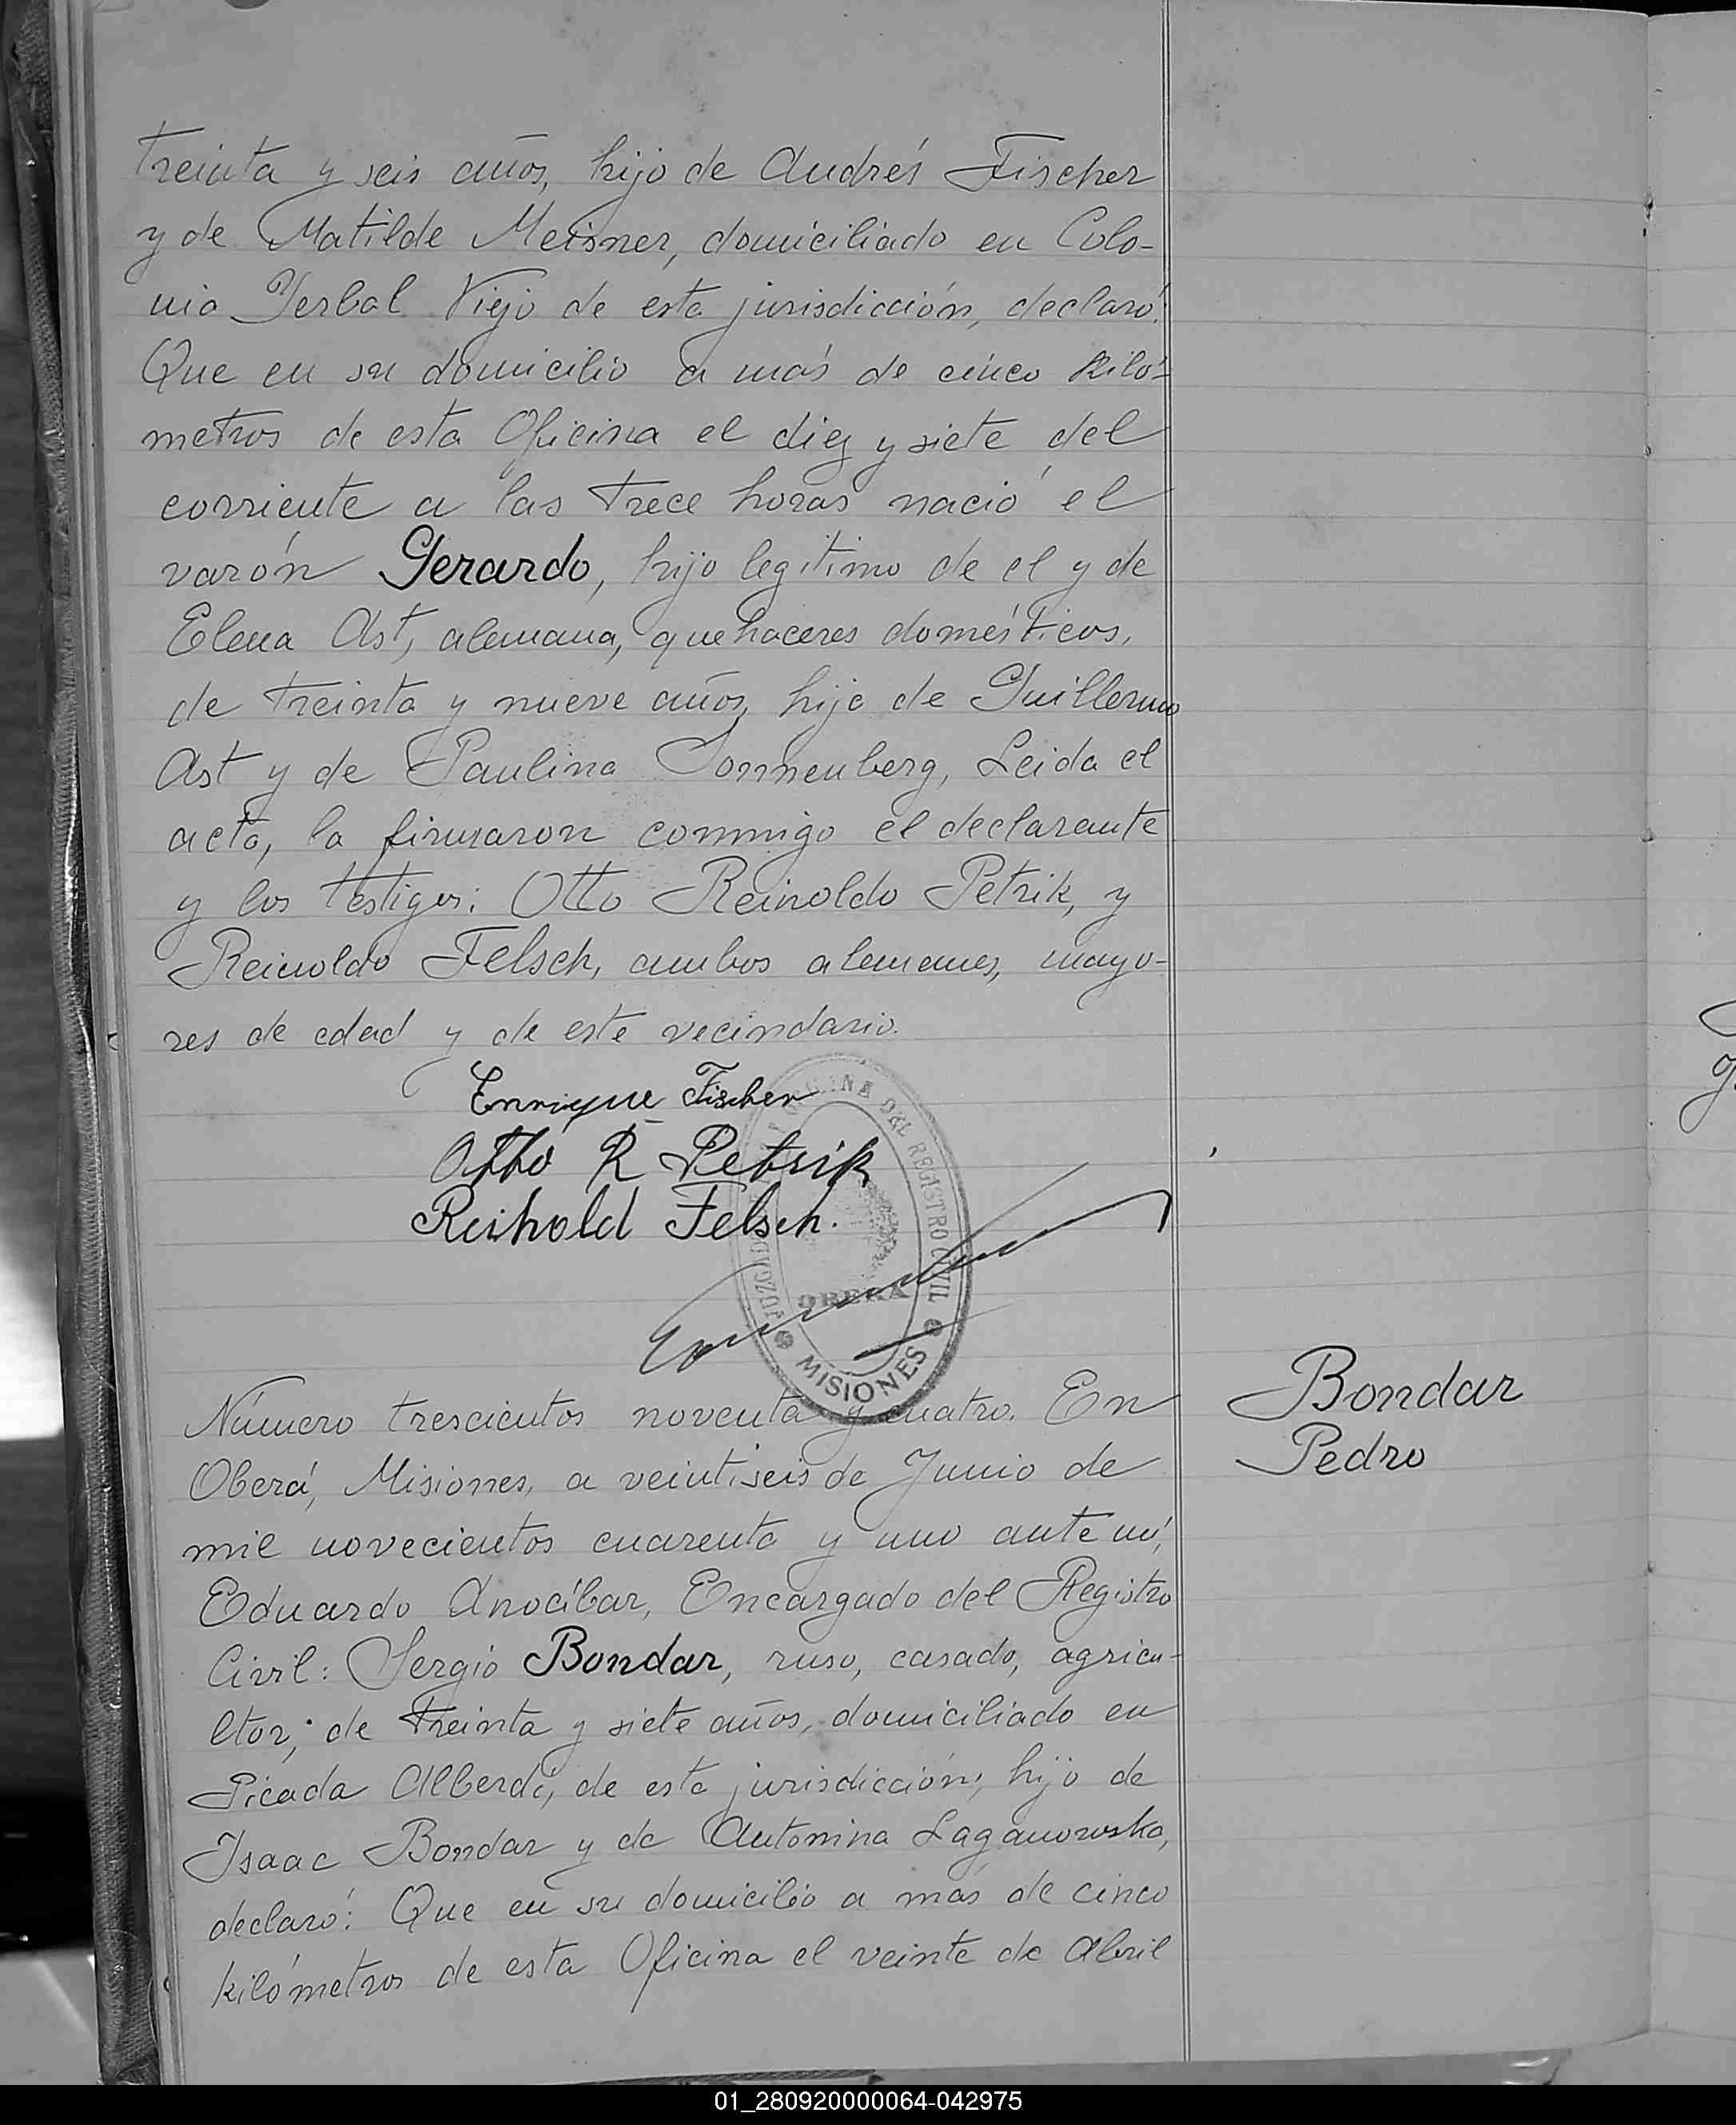 treinta y seis años, hijo de Andrés Fischer
y de Matilde Meisner, domiciliado en Colo-
nia Yerbal Viejo de esta jurisdicción, declaró:
Que en su domicilio a más de cinco kiló-
metros de esta Oficina el diez y siete del
corriente a las trece horas nació el
varón Gerardo, hijo legítimo de el y de
Elena Ast, alemana, quehaceres domésticos,
de treinta y nueve años, hija de Guillermo
Ast y de Paulina Sonnenberg, Leida el
acta, la firmaron conmigo el declarante
y los testigos: Otto Reinoldo Petrik, y
Reinoldo Felsch, ambos alemanes, mayo-
res de edad y de este vecindario.
Enrique Fischer
Otto R Petrik
Reihold Felsch.
OFICINA DEL REGISTRO CIVIL
OBERÁ
MISIONES
Número trescientos noventa y cuatro. En
Oberá, Misiones, a veintiseis de Junio de
mil novecientos cuarenta y uno ante mí,
Eduardo Anocíbar, Encargado del Registro
Civil: Sergio Bondar, ruso, casado, agricu-
ltor, de treinta y siete años, domiciliado en
Picada Alberdi, de esta jurisdicción, hijo de
Isaac Bondar y de Antonina Laganowska,
declaró: Que en su domicilio a más de cinco
kilómetros de esta Oficina el veinte de Abril
Bondar
Pedro
01_280920000064-042975